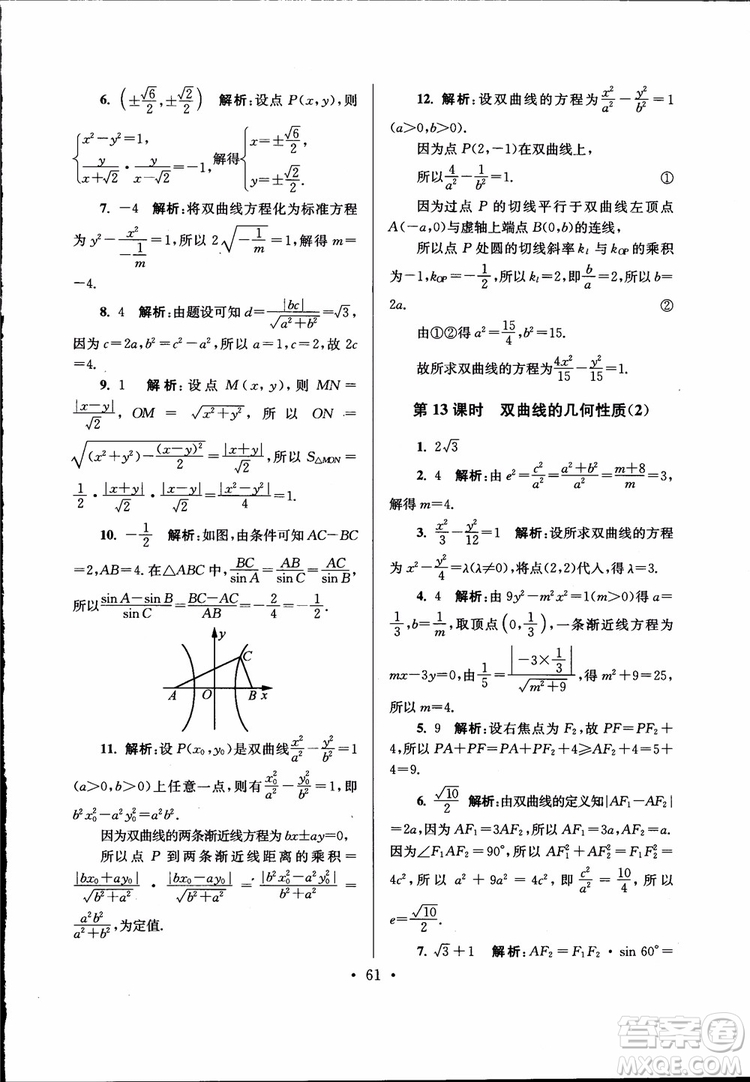 6. (±√6/2, ±√6/2)　解析:设点 P(x,y),则
{x²-y²=1, y/(x+√2)·y/(x-√2)=-1, 解得{x=±√6/2, y=±√6/2.
7. -4　解析:将双曲线方程化为标准方程
为 y²-x²/(-1/m)=1,所以 2√(-1/m)=1,解得 m=
-4.
8. 4　解析:由题设可知 d=|bc|/√(a²+b²)=√3,
因为 c=2a,b²=c²-a²,所以 a=1,故 2c=
4.
9. 1　解析:设点 M(x,y),则 MN=
|x-y|/√2, OM=√(x²+y²),所以 ON=
√((x²+y²)-(x-y)²/2)=|x+y|/√2,所以 S△MON=
1/2·|x+y|/√2·|x-y|/√2=|x²-y²|/4=1.
10. -1/2　解析:如图,由条件可知 AC-BC
=2,AB=4.在△ABC中,BC/sin A=AB/sin C=AC/sin B,
所以(sin A-sin B)/sin C=(BC-AC)/AB=-2/4=-1/2.
y
C
A O B x
11. 解析:设 P(x₀,y₀)是双曲线x²/a²-y²/b²=1
(a>0,b>0)上任意一点,则x₀²/a²-y₀²/b²=1,即
b²x₀²-a²y₀²=a²b².
因为双曲线的两条渐近线方程为 bx±ay=0,
所以点 P 到两条渐近线距离的乘积=
|bx₀+ay₀|/√(b²+a²)·|bx₀-ay₀|/√(b²+a²)=|b²x₀²-a²y₀²|/(a²+b²)=
a²b²/(a²+b²),为定值.
12. 解析:设双曲线的方程为x²/a²-y²/b²=1
(a>0,b>0).
因为点 P(2,-1)在双曲线上,
所以4/a²-1/b²=1.　①
因为过点 P 的切线平行于双曲线左顶点
A(-a,0)与虚轴上端点 B(0,b)的连线,
所以点 P 处圆的切线斜率 kₗ 与 kOP 的乘积
为-1,kOP=-1/2,所以 kₗ=2,即b/a=2,所以 b=
2a.　②
由①②得 a²=15/4,b²=15.
故所求双曲线的方程为4x²/15-y²/15=1.
第 13 课时　双曲线的几何性质(2)
1. 2√3
2. 4　解析:由 e²=c²/a²=(a²+b²)/a²=(m+8)/m=3,
解得 m=4.
3. x²/3-y²/12=1　解析:设所求双曲线的方程
为x²-y²/4=λ(λ≠0),将点(2,2)代入,得 λ=3.
4. 4　解析:由 9y²-m²x²=1(m>0)得 a=
1/3,b=1/m,取顶点(0,1/3),一条渐近线方程为
mx-3y=0,由1/5=|-3×1/3|/√(m²+9),得 m²+9=25,
所以 m=4.
5. 9　解析:设右焦点为 F₂,故 PF=PF₂+
4,所以 PA+PF=PA+PF₂+4≥AF₂+4=5+4
=9.
6. √10/2　解析:由双曲线的定义知|AF₁-AF₂|
=2a,因为 AF₁=3AF₂,所以 AF₁=3a,AF₂=a.
因为∠F₁AF₂=90°,所以 AF₁²+AF₂²=F₁F₂²=
4c²,所以 a²+9a²=4c²,即c/a=√10/2,所以
e=√10/2.
7. √3+1　解析:AF₂=F₁F₂·sin 60°=
· 61 ·
答案圈
MXQE.COM